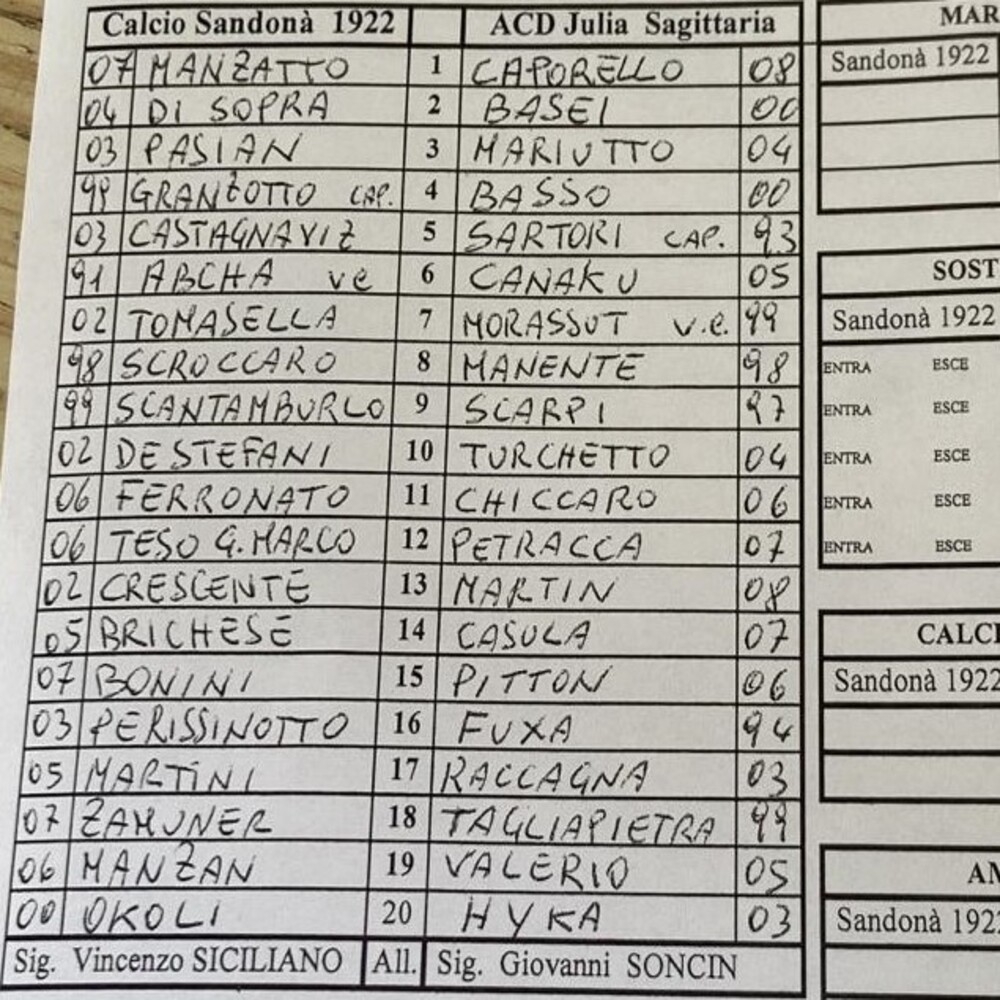 Calcio Sandonà 1922 ACD Julia Sagittaria
07 MANZATTO 1 CAPORELLO 08
04 DI SOPRA 2 BASEI 00
03 PASIAN 3 MARIUTTO 04
99 GRANZOTTO CAP. 4 BASSO 00
03 CASTAGNAVIZ 5 SARTORI CAP. 93
91 ABCHA ve 6 CANAKU 05
02 TOMASELLA 7 MORASSUT v.e. 99
98 SCROCCARO 8 MANENTE 98
99 SCANTAMBURLO 9 SCARPI 97
02 DE STEFANI 10 TURCHETTO 04
06 FERRONATO 11 CHICCARO 06
06 TESO G. MARCO 12 PETRACCA 07
02 CRESCENTE 13 MARTIN 08
05 BRICHESE 14 CASULA 07
07 BONINI 15 PITTON 06
03 PERISSINOTTO 16 FUXA 94
05 MARTINI 17 RACCAGNA 03
07 ZAMUNER 18 TAGLIAPIETRA 99
06 MANZAN 19 VALERIO 05
00 OKOLI 20 HYKA 03
Sig. Vincenzo SICILIANO All. Sig. Giovanni SONCIN
MAR
Sandonà 1922
SOST
Sandonà 1922
ENTRA ESCE
ENTRA ESCE
ENTRA ESCE
ENTRA ESCE
ENTRA ESCE
CALCI
Sandonà 1922
AM
Sandonà 1922